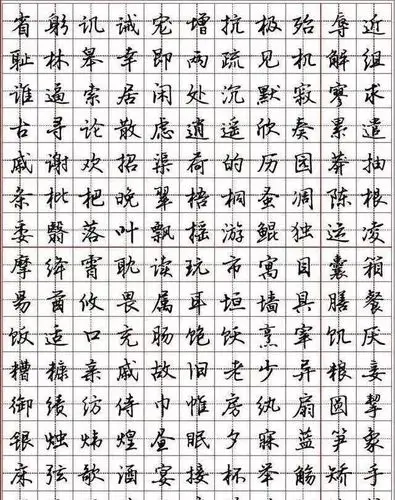 省躬讥诫宠增抗极殆辱近
耻林皋幸即两疏见机解组
谁逼索居闲处沉默寂寥求
古寻论散虑逍遥欣奏累遣
戚谢欢招渠荷的历园莽抽
条枇杷晚翠梧桐蚤凋陈根
委翳落叶飘摇游鲲独运凌
摩绛霄耽读玩市寓目囊箱
易輶攸畏属耳垣墙具膳餐
饭适口充肠饱饫烹宰饥厌
糟糠亲戚故旧老少异粮妾
御绩纺侍巾帷房纨扇圆挈
银烛炜煌昼眠夕寐蓝笋象
床弦歌酒宴接杯举觞矫手